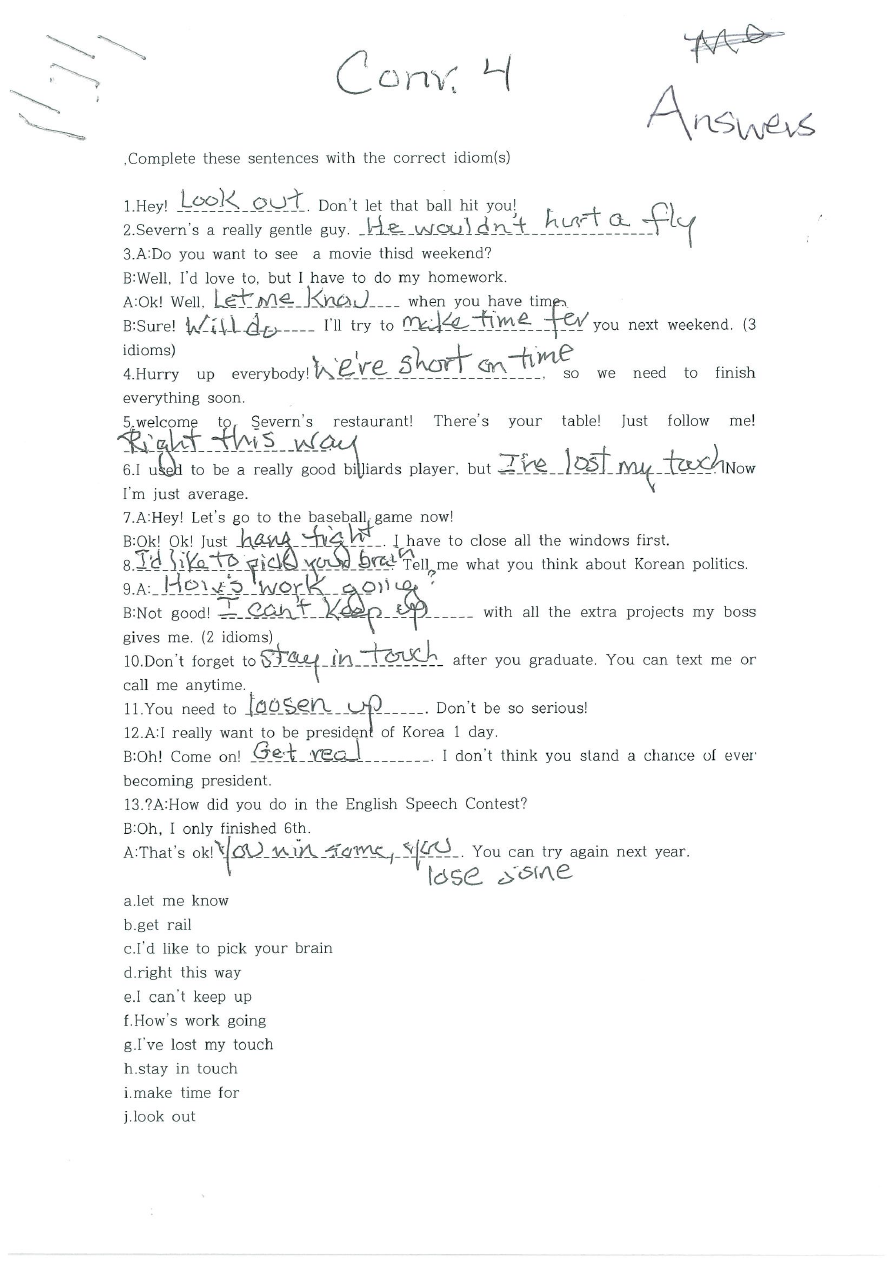 Conv. 4
Answers
,Complete these sentences with the correct idiom(s)
1.Hey! Look out. Don't let that ball hit you!
2.Severn's a really gentle guy. He wouldn't hurt a fly
3.A:Do you want to see a movie thisd weekend?
B:Well, I'd love to, but I have to do my homework.
A:Ok! Well, Let me know when you have time.
B:Sure! Will do I'll try to make time for you next weekend. (3
idioms)
4.Hurry up everybody! We're short on time, so we need to finish
everything soon.
5.welcome to Severn's restaurant! There's your table! Just follow me!
Right this way
6.I used to be a really good billiards player, but I've lost my touch Now
I'm just average.
7.A:Hey! Let's go to the baseball game now!
B:Ok! Ok! Just hang tight. I have to close all the windows first.
8.I'd like to pick your brain Tell me what you think about Korean politics.
9.A: How's work going?
B:Not good! I can't keep up with all the extra projects my boss
gives me. (2 idioms)
10.Don't forget to stay in touch after you graduate. You can text me or
call me anytime.
11.You need to loosen up. Don't be so serious!
12.A:I really want to be president of Korea 1 day.
B:Oh! Come on! Get real. I don't think you stand a chance of ever
becoming president.
13.?A:How did you do in the English Speech Contest?
B:Oh, I only finished 6th.
A:That's ok! You win some, you. You can try again next year.
lose some
a.let me know
b.get rail
c.I'd like to pick your brain
d.right this way
e.I can't keep up
f.How's work going
g.I've lost my touch
h.stay in touch
i.make time for
j.look out